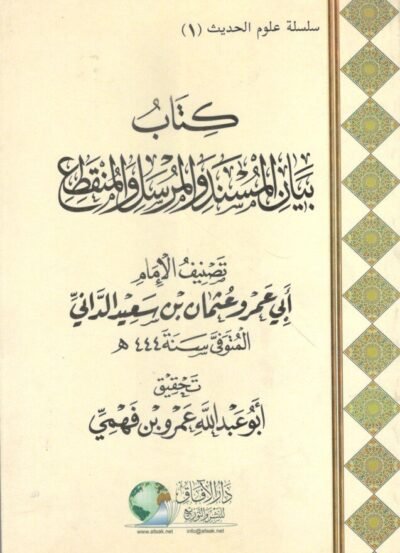 سلسلة علوم الحديث (١)
كِتَابُ
بَيَانِ المُسْنَدِ وَالمُرْسَلِ وَالمُنْقَطِعِ
تَصْنِيفُ الإِمَامِ
أَبِي عَمْرٍو عُثْمَانَ بْنِ سَعِيدٍ الدَّانِيِّ
المُتَوَفَّى سَنَةَ ٤٤٤ هـ
تَحْقِيق
أَبُو عَبْدِ اللَّهِ عَمْرُو بْنُ فَهْمِيِّ
دَارُ الآفَاقِ
للنشر والتوزيع
www.afaak.net info@afaak.net